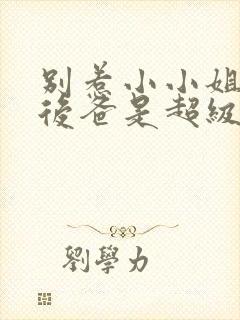 別惹小小姐
後爸是超級
劉學力